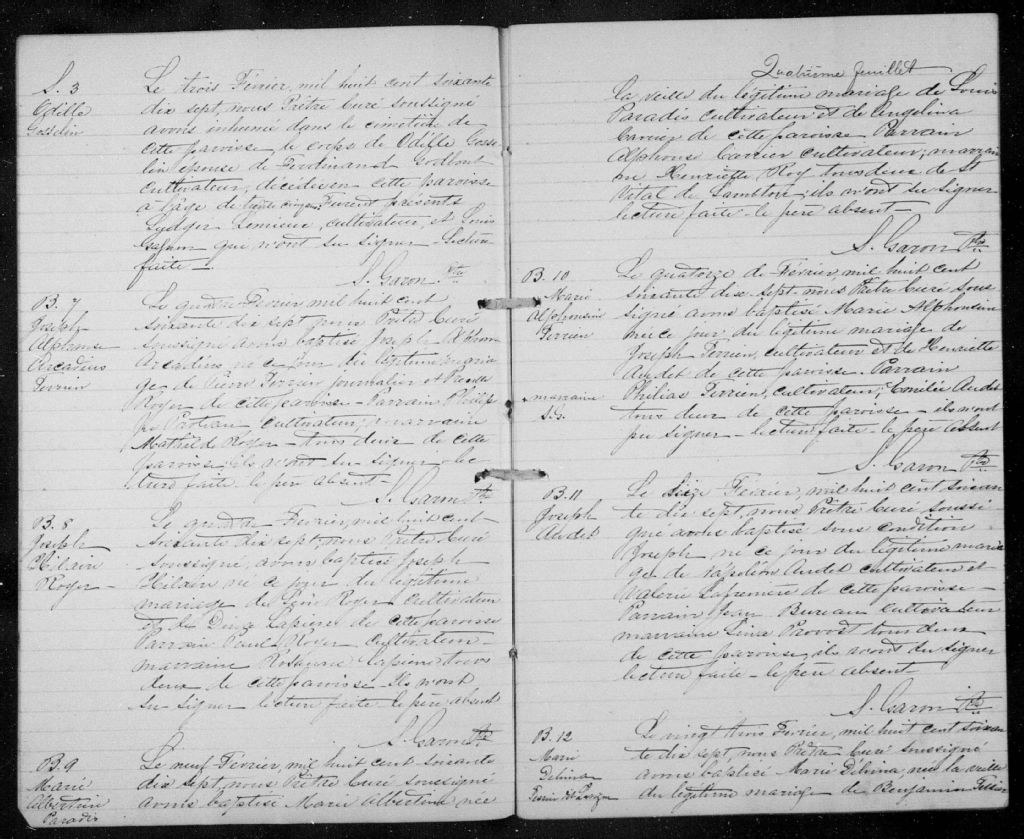 S. 3
Odille
Gosselin
Le trois Février, mil huit cent soixante
dix sept, nous Prêtre Curé soussigné
avons inhumé dans le cimetière de
cette paroisse le corps de Odille Gosse
lin épouse de Ferdinand Godbout
cultivateur, décédée en cette paroisse
à l'âge de trente cinq ans. Furent présents
Lemieux, cultivateur, et Louis
Gagnon que n'ont su signer - Lecture
faite -
S. Garon Ptre
B. 7
Joseph
Alphonse
Arcadius
Perrien
Le quatre Février mil huit cent
soixante dix sept nous Prêtre Curé
soussigné avons baptisé Joseph Alphon
Arcadius né ce jour du légitime maria
ge de Pierre Perrien journalier et
Roger de cette paroisse - Parrain Philip
pe cultivateur, marraine
Mathilde Roger - tous deux de cette
paroisse, ils n'ont su signer - lec
ture faite. le père absent -
S. Garon Ptre
B. 8
Joseph
Hilaire
Roger
Le quatre Février, mil huit cent
soixante dix sept, nous Prêtre Curé
soussigné, avons baptisé Joseph
Hilaire né ce jour du légitime
mariage de Roger cultivateur
et de Lapierre de cette paroisse
Parrain Paul Roger cultivateur
marraine Rosanne Lapierre tous
deux de cette paroisse Ils n'ont
su signer lecture faite - le père absent
S. Garon Ptre
B. 9
Marie
Albertine
Paradis
Le neuf Février, mil huit cent soixante
dix sept, nous Prêtre Curé soussigné
avons baptisé Marie Albertine née
Quatrième feuillet
la veille du légitime mariage de Louis
Paradis cultivateur et de Angelina
Carrier de cette paroisse Parrain
Alphonse Carrier cultivateur, marrai
ne Henriette Roy tous deux de St
Vital de Lambton, ils n'ont su signer
lecture faite - le père absent -
S. Garon Ptre
B. 10
Marie
Alphonsine
Perrien
marraine
S.G.
Le quatorze de Février mil huit cent
soixante dix sept nous Prêtre Curé sous
signé avons baptisé Marie Alphonsine
née ce jour du légitime mariage de
Joseph Perrien, cultivateur et de Henriette
Audet de cette paroisse. Parrain
Philias Perrien, cultivateur, Emilie Audet
tous deux de cette paroisse - ils n'ont
pu signer - lecture faite - le père absent
S. Garon Ptre
B. 11
Joseph
Audet
Le Seize Février, mil huit cent soixan
te dix sept, nous Prêtre Curé soussi
gné avons baptisé sous condition
Joseph, né ce jour du légitime maria
ge de Napoléon Audet cultivateur et
Valérie Lafrenière de cette paroisse -
Parrain Jean Bureau cultivateur
marraine Lina Provost tous deux
de cette paroisse, ils n'ont su signer
lecture faite - le père absent -
S. Garon Ptre
B. 12
Marie
Delima
Le vingt trois Février, mil huit cent soixan
te dix sept, nous Prêtre Curé soussigné
avons baptisé Marie Délima, née la veille
du légitime mariage de Benjamin